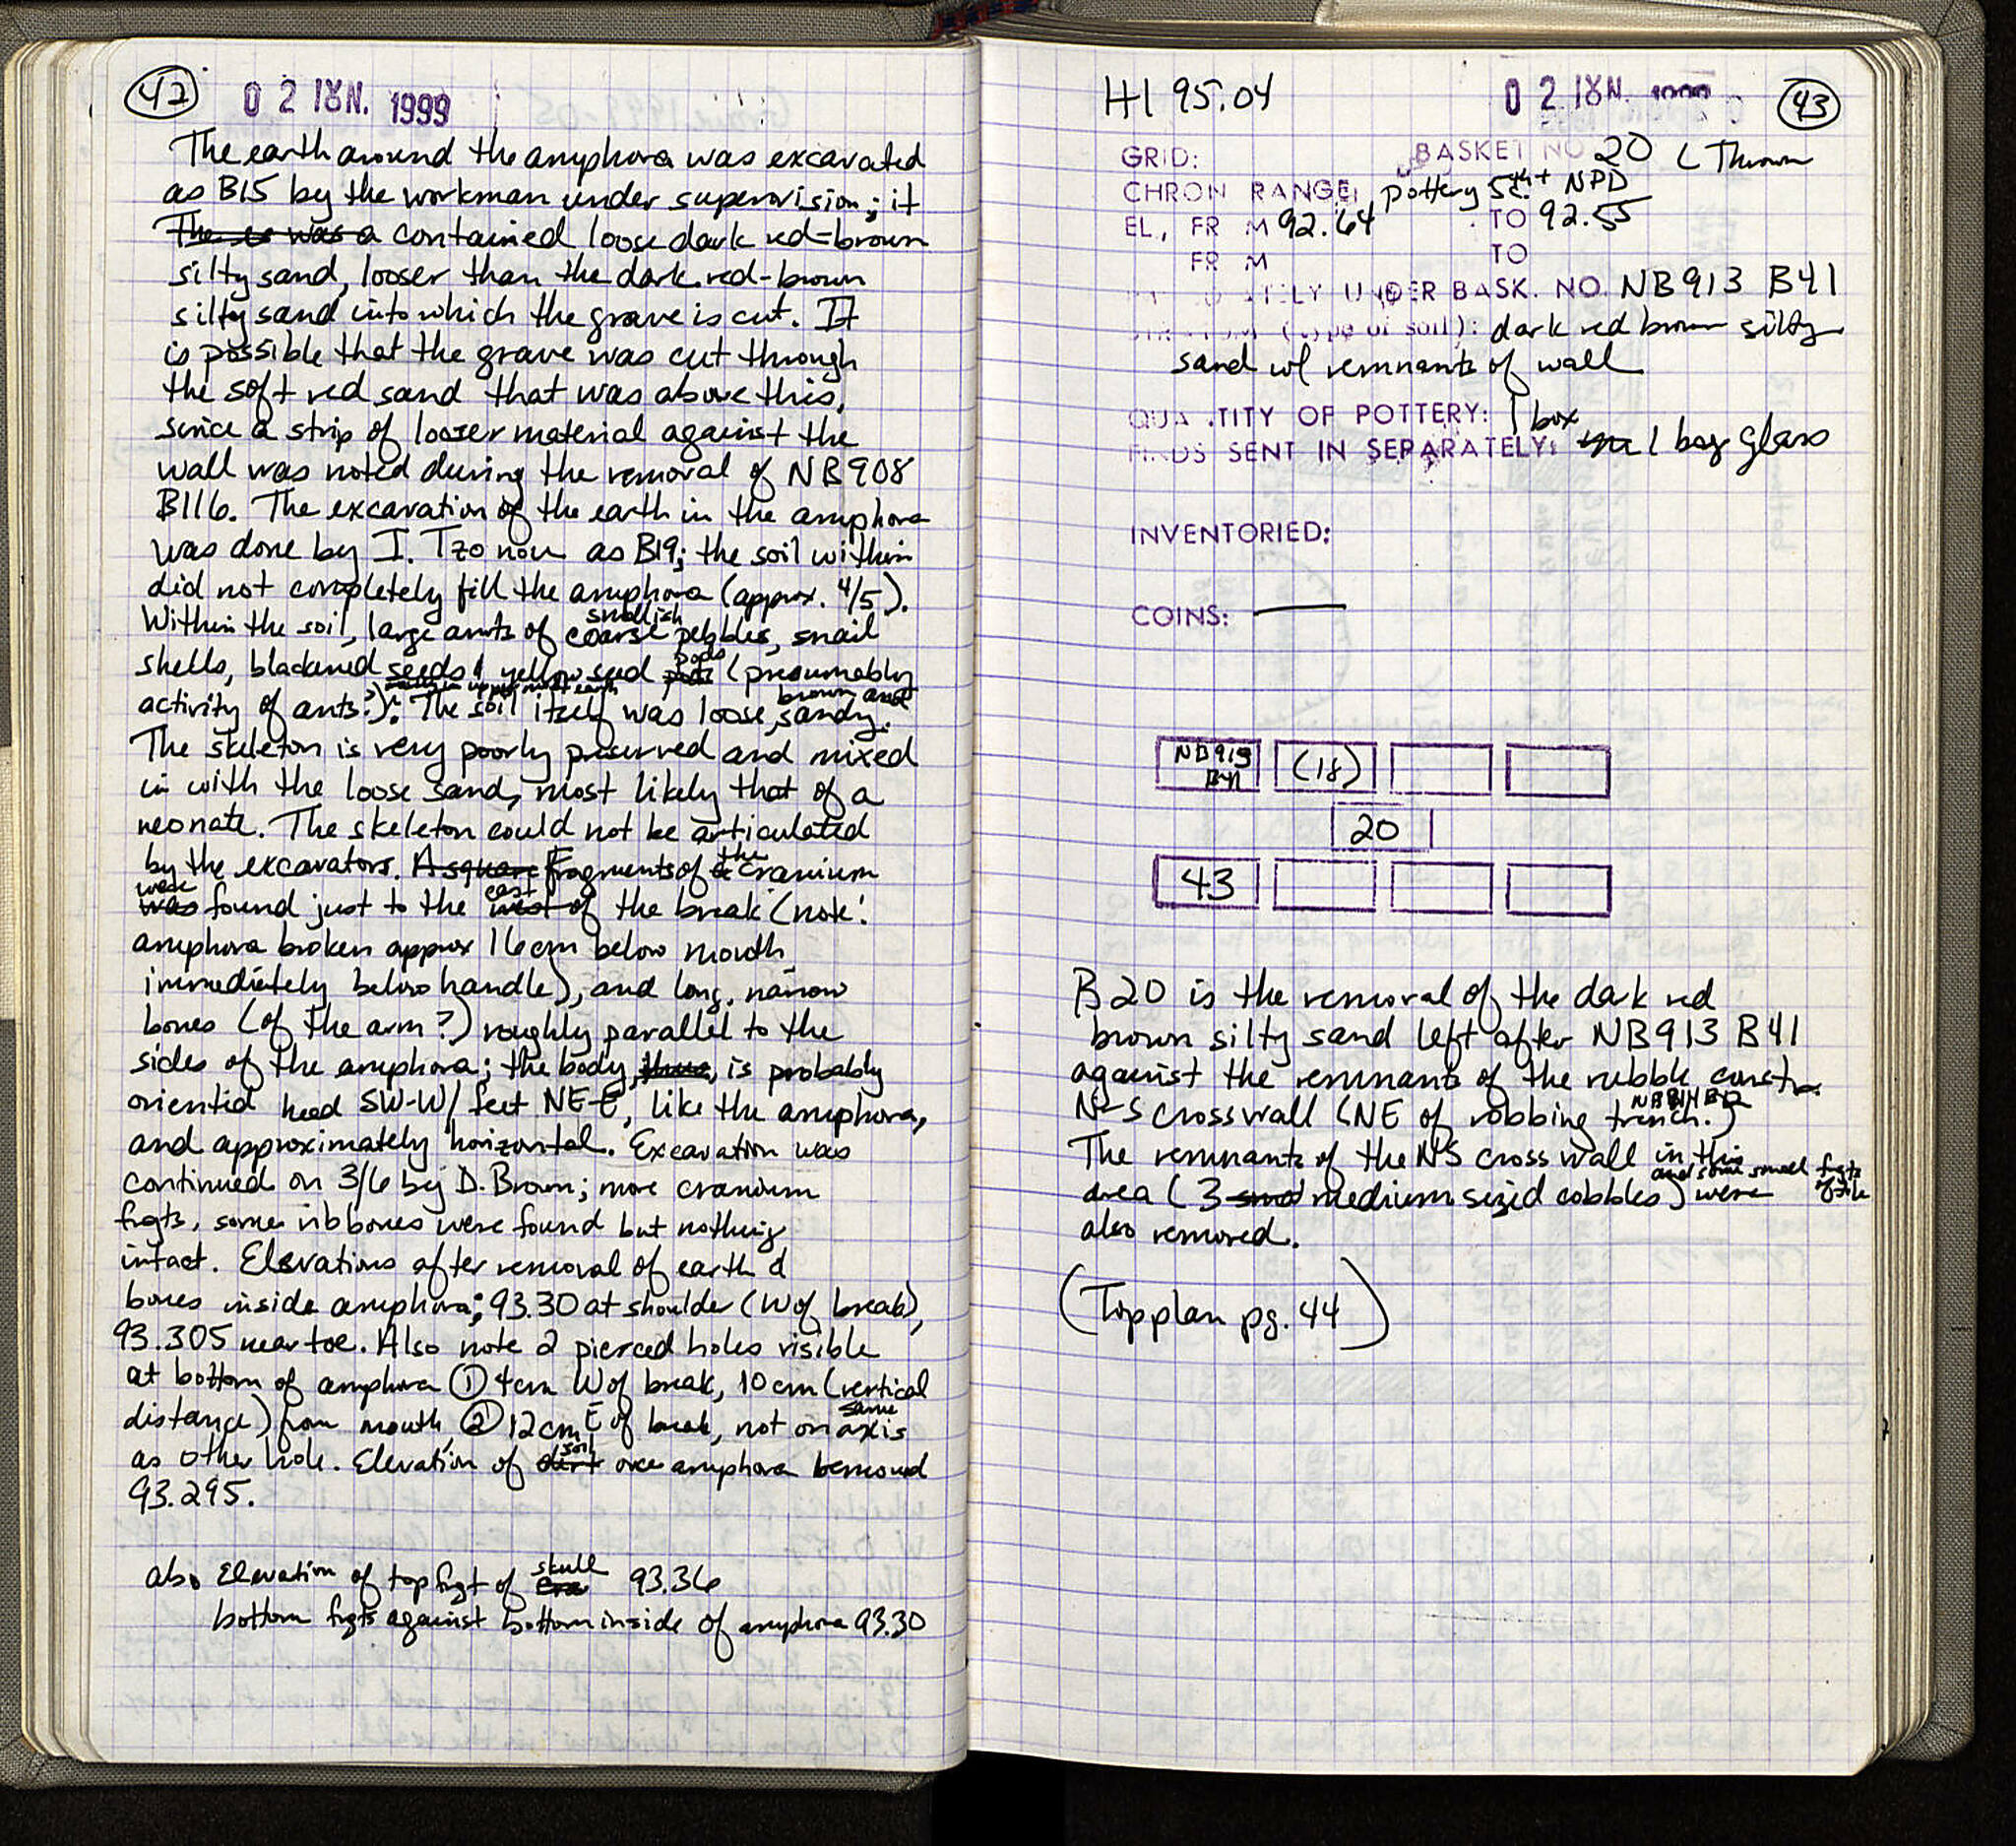 42
02 ΙΟΥΝ. 1999
The earth around the amphora was excavated
as B15 by the workman under supervision; it
The was a contained loose dark red-brown
silty sand, looser than the dark red-brown
silty sand into which the grave is cut. It
is possible that the grave was cut through
the soft red sand that was above this,
since a strip of looser material against the
wall was noted during the removal of NB908
B116. The excavation of the earth in the amphora
was done by I. Tzonou as B19; the soil within
did not completely fill the amphora (approx. 4/5).
Within the soil, large amts of coarse smallish pebbles, snail
shells, blackened seeds & yellow seed pods (presumably
activity of ants?) in uppermost earth. The soil itself was loose, brown and sandy.
The skeleton is very poorly preserved and mixed
in with the loose sand, most likely that of a
neonate. The skeleton could not be articulated
by the excavators. A square Fragments of the cranium
was were found just to the west east of the break (note:
amphora broken approx 16cm below mouth
immediately below handle), and long, narrow
bones (of the arm?) roughly parallel to the
sides of the amphora; the body, thus, is probably
oriented head SW-W/ feet NE-E, like the amphora,
and approximately horizontal. Excavation was
continued on 3/6 by D. Brown; more cranium
frgts, some rib bones were found but nothing
intact. Elevations after removal of earth &
bones inside amphora; 93.30 at shoulder (W of break),
93.305 near toe. Also note 2 pierced holes visible
at bottom of amphora ① 4cm W of break, 10cm (vertical
distance) from mouth ② 12cm E of break, not on same axis
as other hole. Elevation of dirt soil once amphora removed
93.295.
also Elevation of top frgt of cra skull 93.36
bottom frgts against bottom inside of amphora 93.30
H1 95.04
02 ΙΟΥΝ. 1999
43
GRID: BASKET NO 20 (Thrown
CHRON RANGE: pottery 5th+ NPD
EL., FR M 92.64 TO 92.55
FR M TO
UNDER BASK. NO. NB913 B41
(type of soil): dark red brown silty
sand w/ remnants of wall
QUA TITY OF POTTERY: 1 box
FINDS SENT IN SEPARATELY: 1 bag glass
INVENTORIED:
COINS: —
NB913 B41 (18)
20
43
B20 is the removal of the dark red
brown silty sand left after NB913 B41
against the remnants of the rubble constr.
N-S crosswall (NE of robbing trench NB914 B12.)
The remnants of the NS cross wall in this
area (3 small medium sized cobbles) and some small frgts of tile were
also removed.
(Top plan pg. 44)